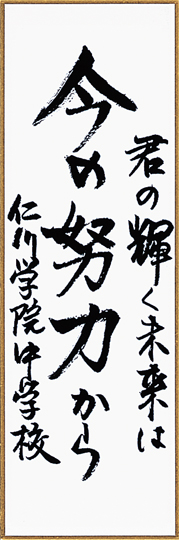 君の輝く未来は
今の努力から
仁川学院中学校